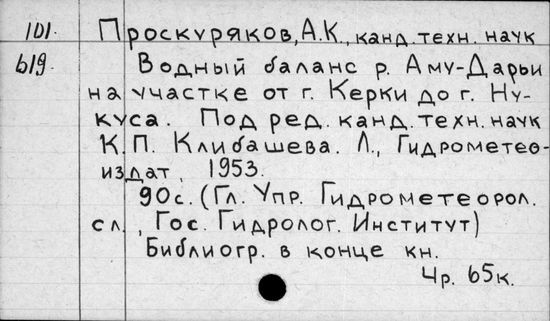 101. Проскуряков, А.К., канд. техн. наук
619. Водный баланс р. Аму-Дарьи
на участке от г. Керки до г. Ну-
куса. Под ред. канд. техн. наук
К.П. Клибашева. Л., Гидрометео-
издат, 1953.
90с. (Гл. Упр. Гидрометеорол.
сл., Гос. Гидролог. Институт)
Библиогр. в конце кн.
4р. 65к.